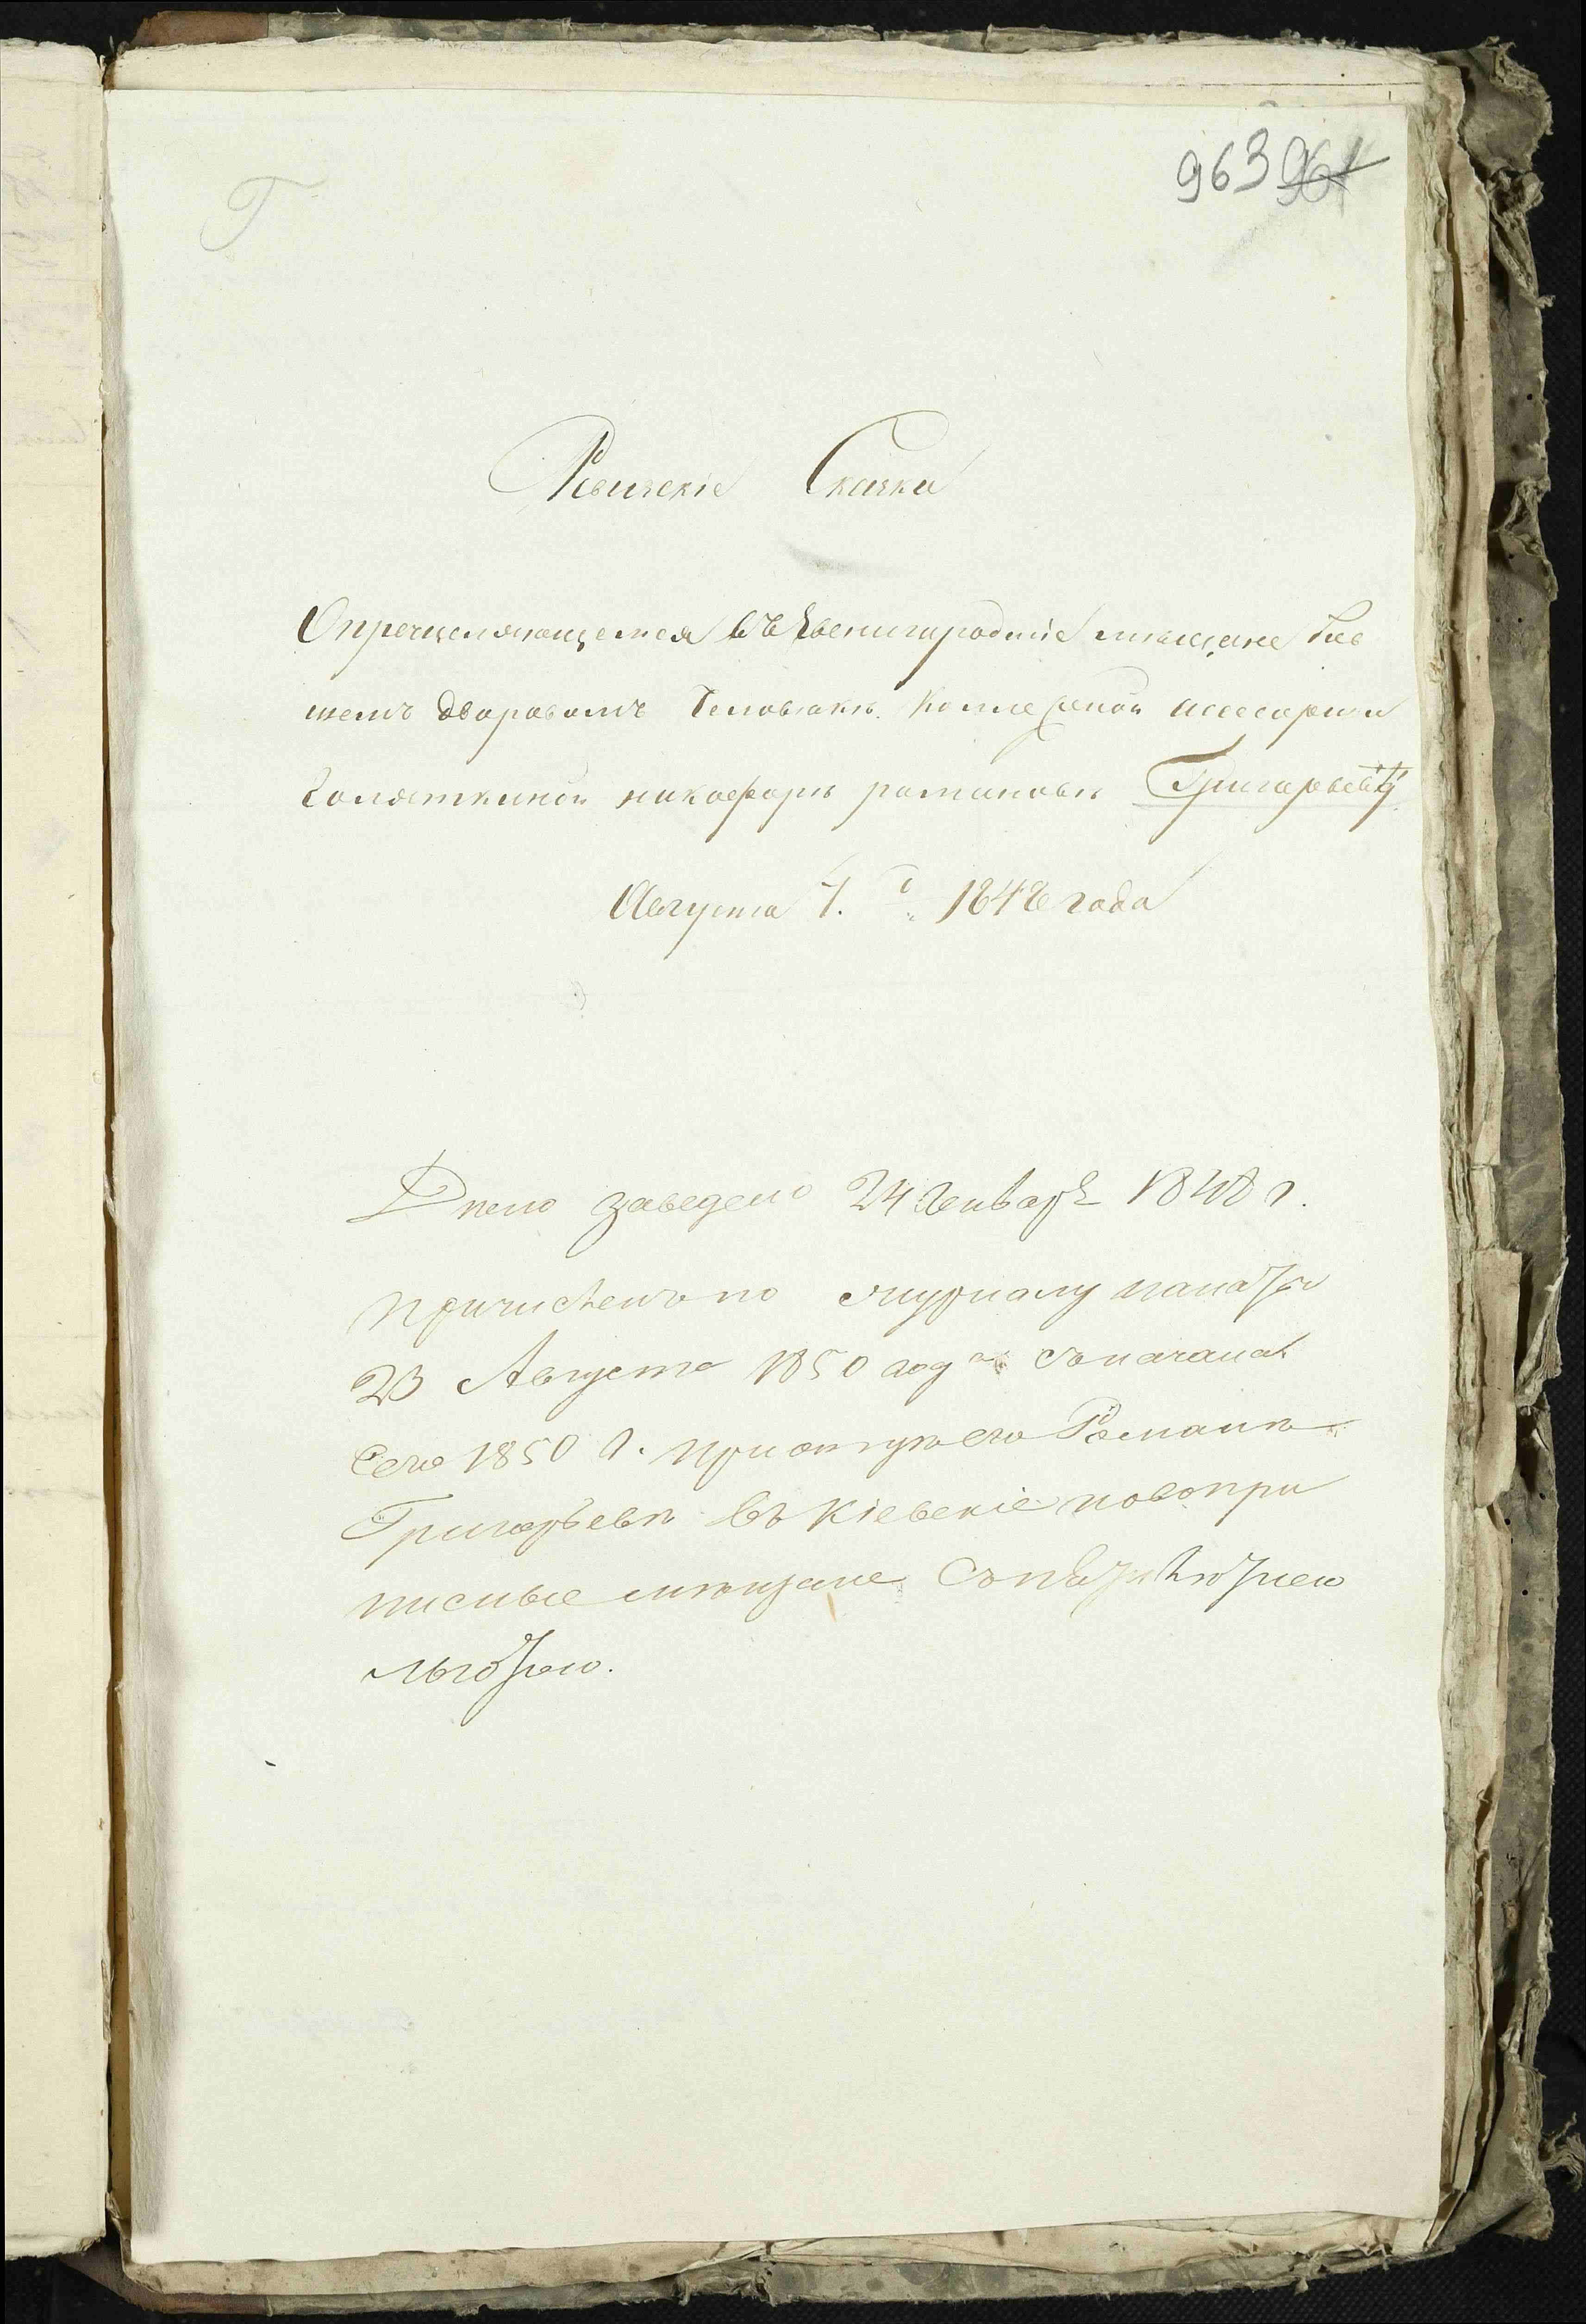 963 961
Г
Ревизскіе Сказки
О пречисляющемся въ Звенигородскіе мещане быв
шемъ дворовомъ человѣкѣ Коллежской асесорши
Голяткиной никофорѣ романовѣ Григорьевѣ
Августа 4. 1848 года
Дѣло заведено 24 Генваря 1848 г.
Причисленъ по журналу палаты
23 Августа 1850 года съ начала
сего 1850 г. при отцѣ его Романѣ
Григорьевѣ въ Кіевскіе новопри
писные мѣщане съ пятилѣтнею
льготою.